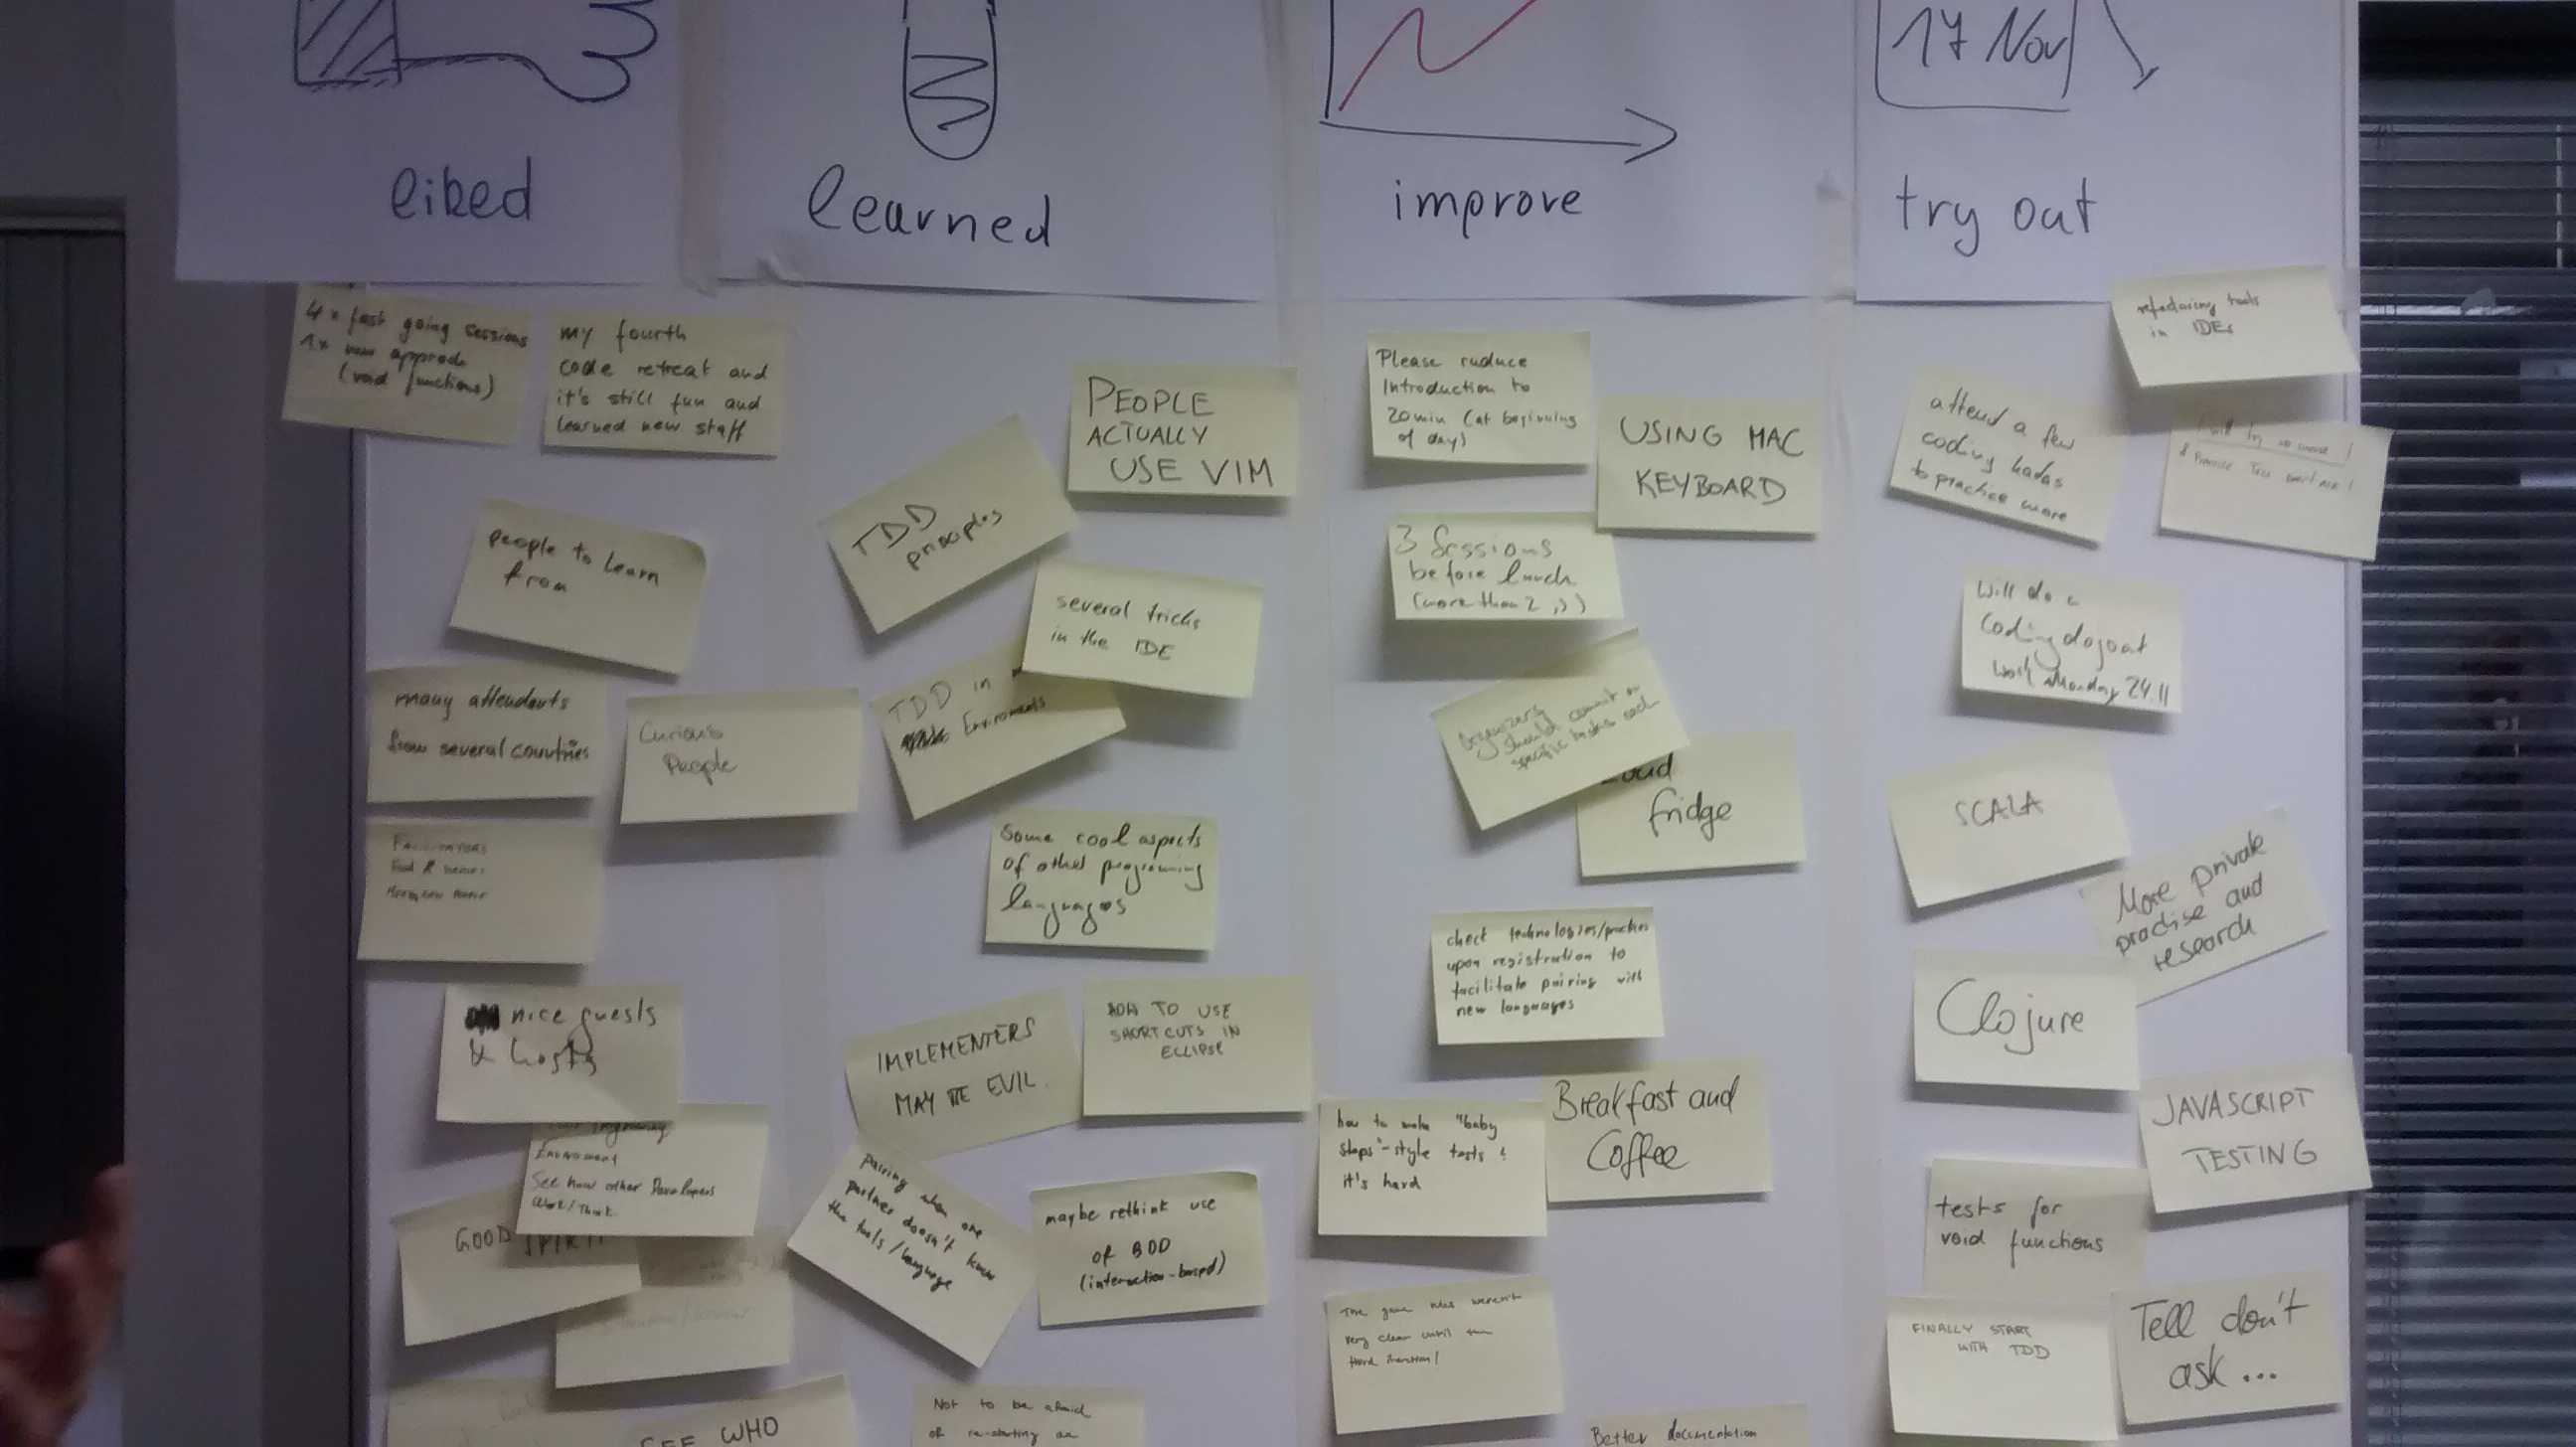 17 Nov
liked
learned
improve
try out
4x fast going sessions
1x new approach
(void functions)
my fourth
code retreat and
it's still fun and
learned new staff
people to learn
from
many attendants
from several countries
Curious
People
FACILITATORS
nice guests
& hosts
Enviroment
See how other Developers
Work/Think
GOOD
SPIRIT
SEE WHO
PEOPLE
ACTUALLY
USE VIM
TDD
principles
several tricks
in the IDE
TDD in
Enviroments
Some cool aspects
of other programing
languages
IMPLEMENTERS
MAY BE EVIL.
HOW TO USE
SHORTCUTS IN
ECLIPSE
pairing when one
partner doesn't know
the tools/language
maybe rethink use
of BDD
(interaction-based)
Not to be afraid
of re-starting an
Please ruduce
Introduction to
20min (at beginning
of day)
USING MAC
KEYBOARD
3 Sessions
before lunch
(more than 2 ;))
Organizers
should commit on
specific tasks each
Loud
fridge
check technologies/practices
upon registration to
facilitate pairing with
new languages
how to make "baby
steps"-style tests
it's hard
Breakfast and
Coffee
The game rules weren't
very clear until the
third iteration!
Better documentation
refactoring tools
in IDEs
attend a few
coding katas
to practice more
Will do a
Coding dojo at
work Monday 24.11
SCALA
More private
practise and
research
Clojure
JAVASCRIPT
TESTING
tests for
void functions
FINALLY START
WITH TDD
Tell don't
ask...